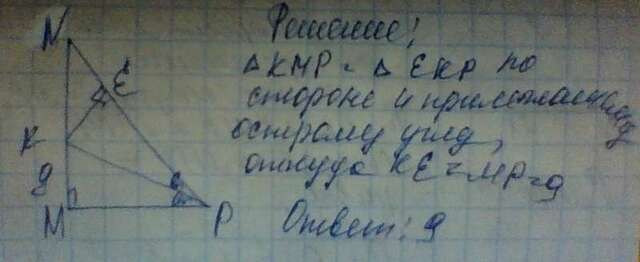 N
E
K
9
M
P
Решение:
Δ KMP = Δ EKP по
стороне и прилегающему
острому углу,
откуда KE = MP = 9
Ответ: 9